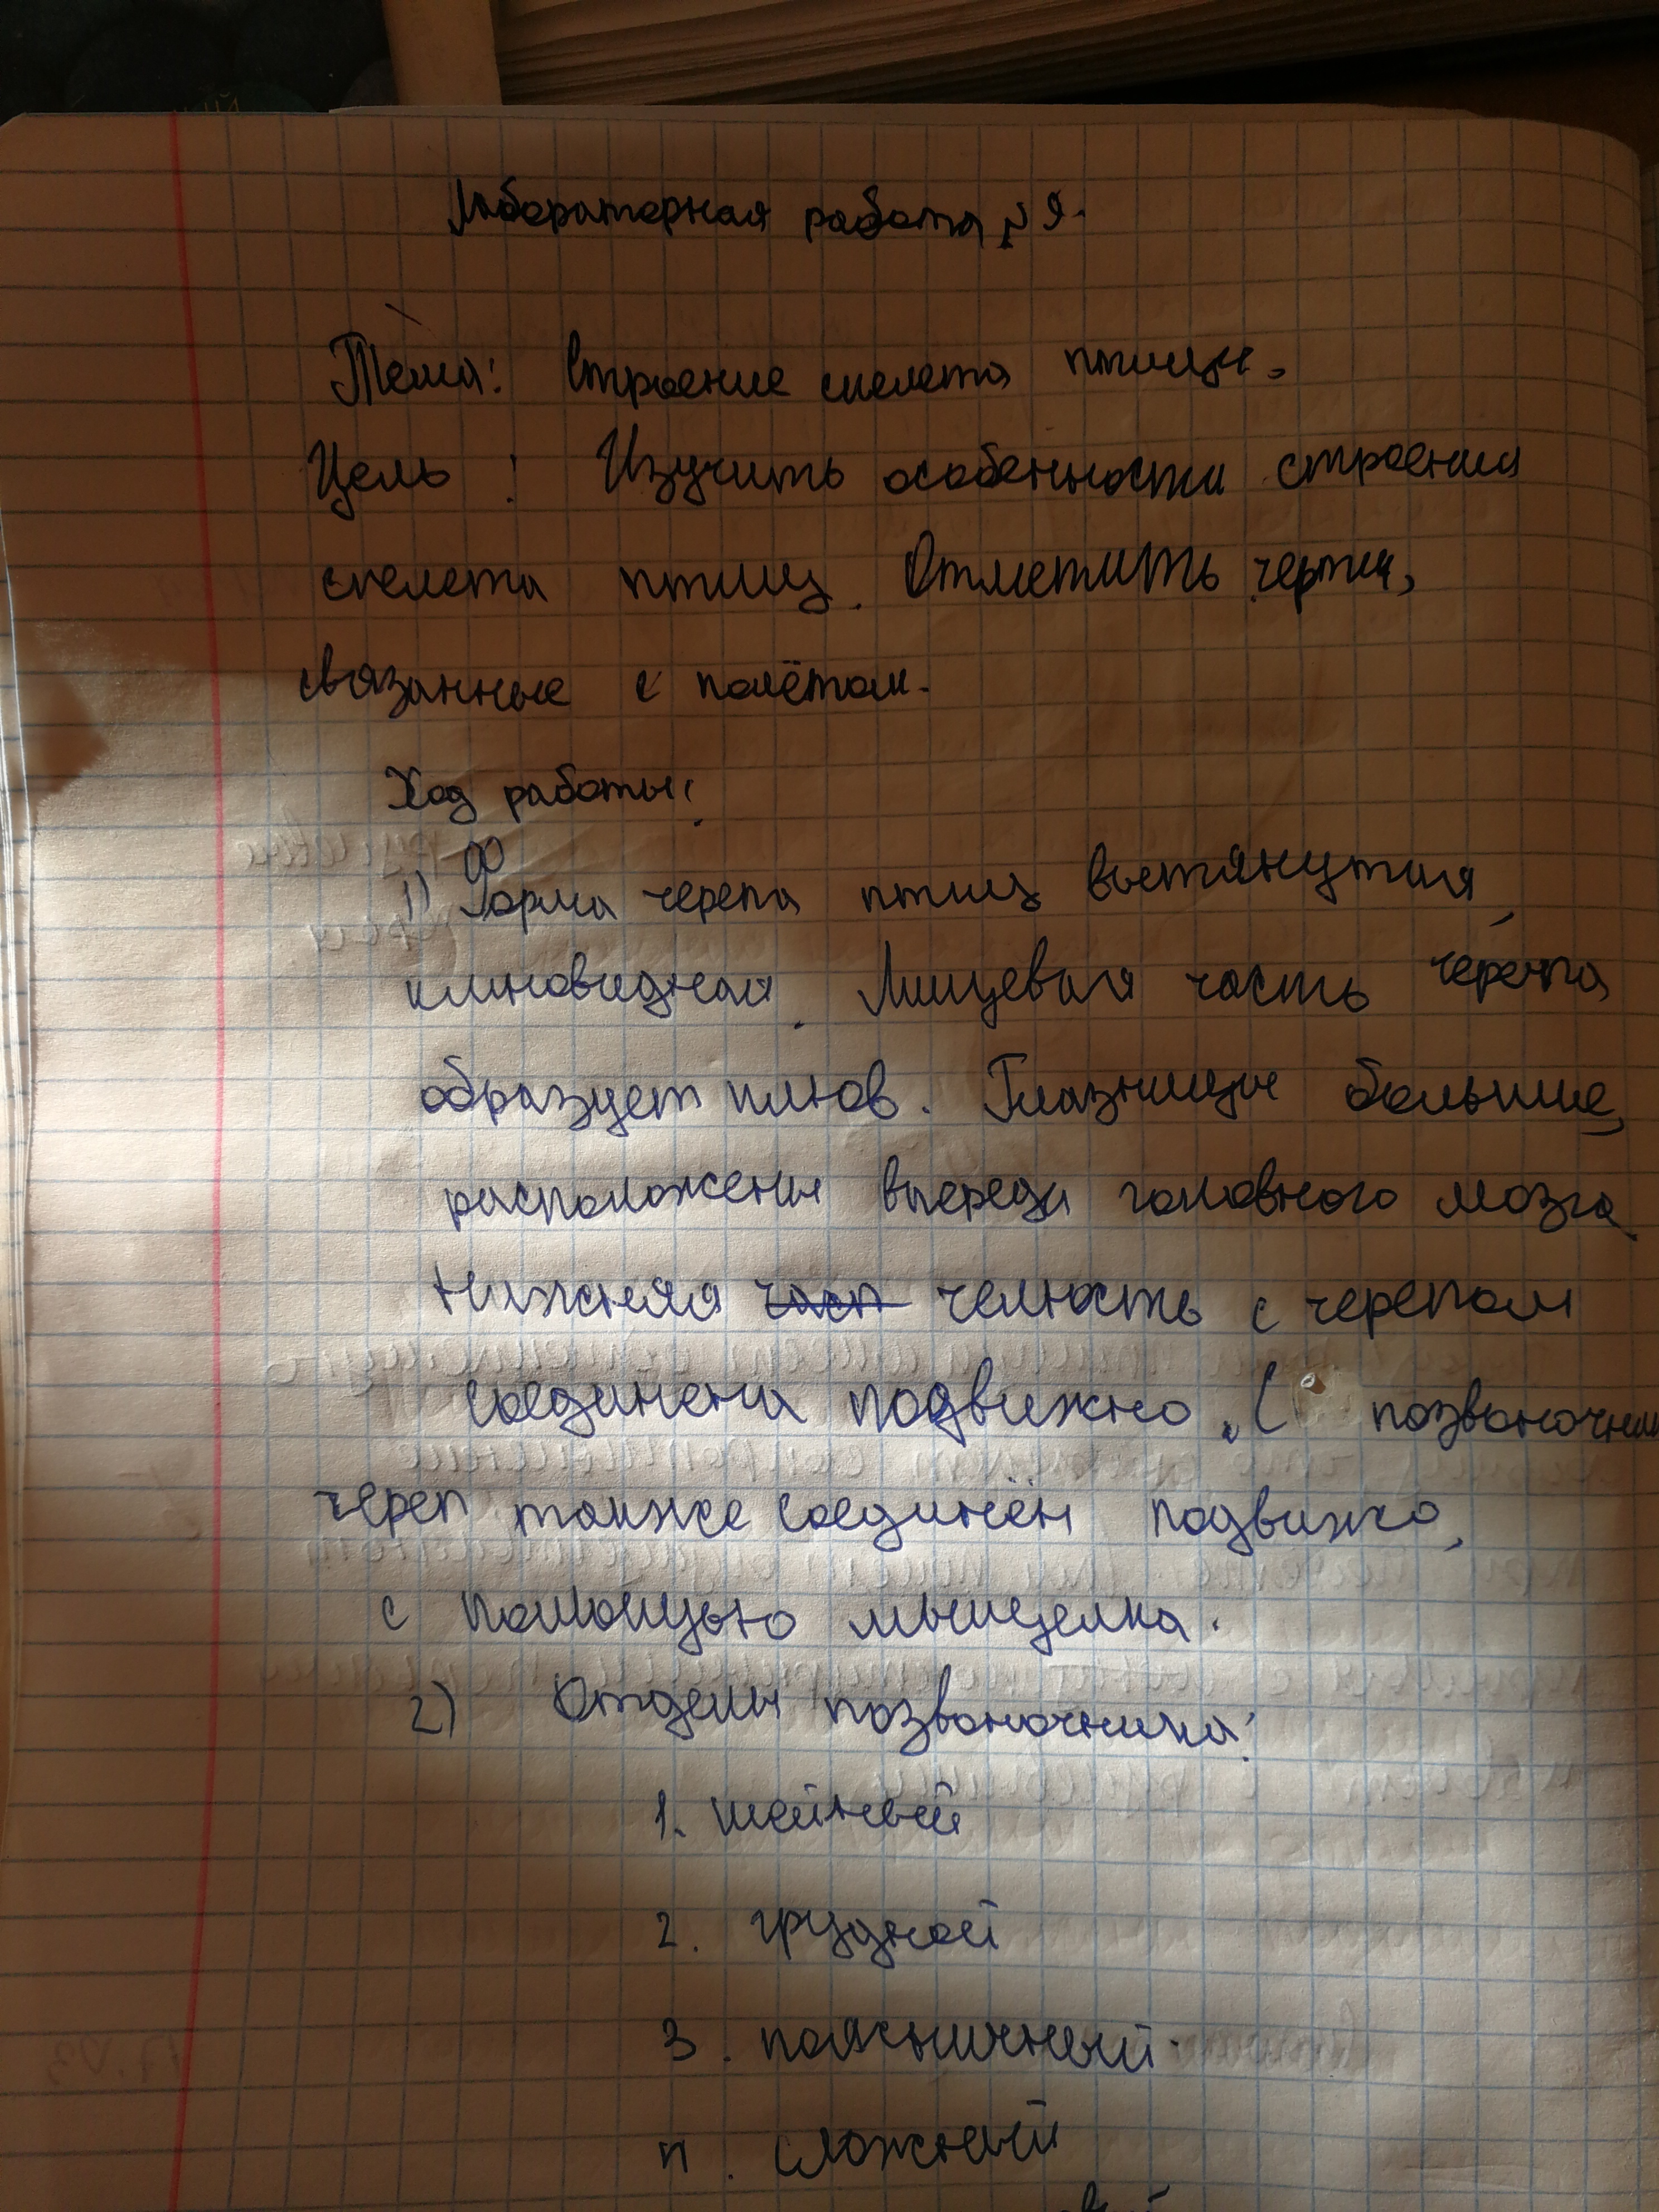 Лабораторная работа №9.
Тема: Строение скелета птицы.
Цель: Изучить особенности строения
скелета птиц. Отметить черты,
связанные с полётом.
Ход работы:
1) Форма черепа птиц вытянутая,
клиновидная. Лицевая часть черепа
образует клюв. Глазницы большие,
расположены впереди головного мозга.
Нижняя част челюсть с черепом
соединена подвижно. С позвоночник
череп также соединён подвижно,
с помощью мыщелка.
2) Отделы позвоночника:
1. шейный
2. грудной
3. поясничный.
4. сложный